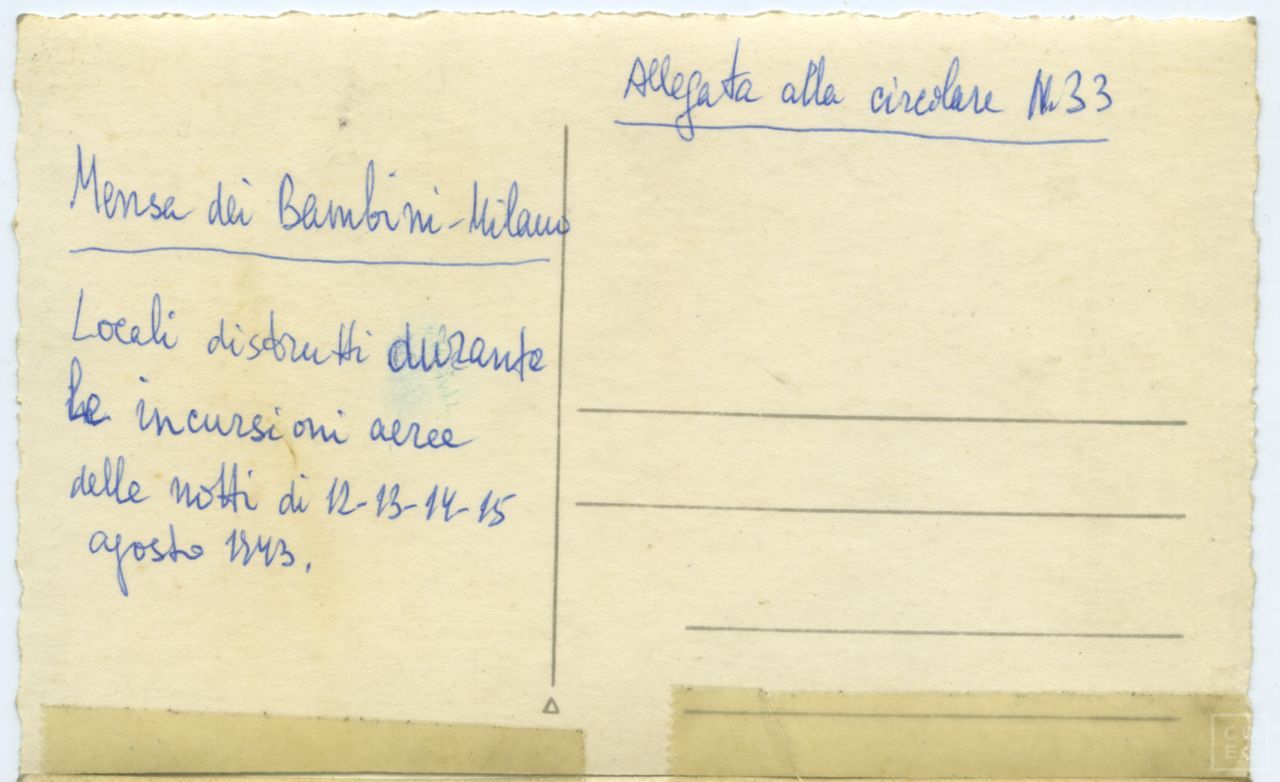 Allegata alla circolare N. 33
Mensa dei Bambini - Milano
Locali distrutti durante
le incursioni aeree
delle notti di 12-13-14-15
agosto 1943.